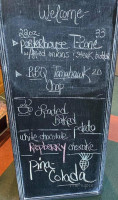 Welcome
22oz 33
Porterhouse
w/ fried onions
BBQ Tomahawk 20
Chop
Baked
gelato
white chocolate
Raspberry cheesecake
Pina
Colada